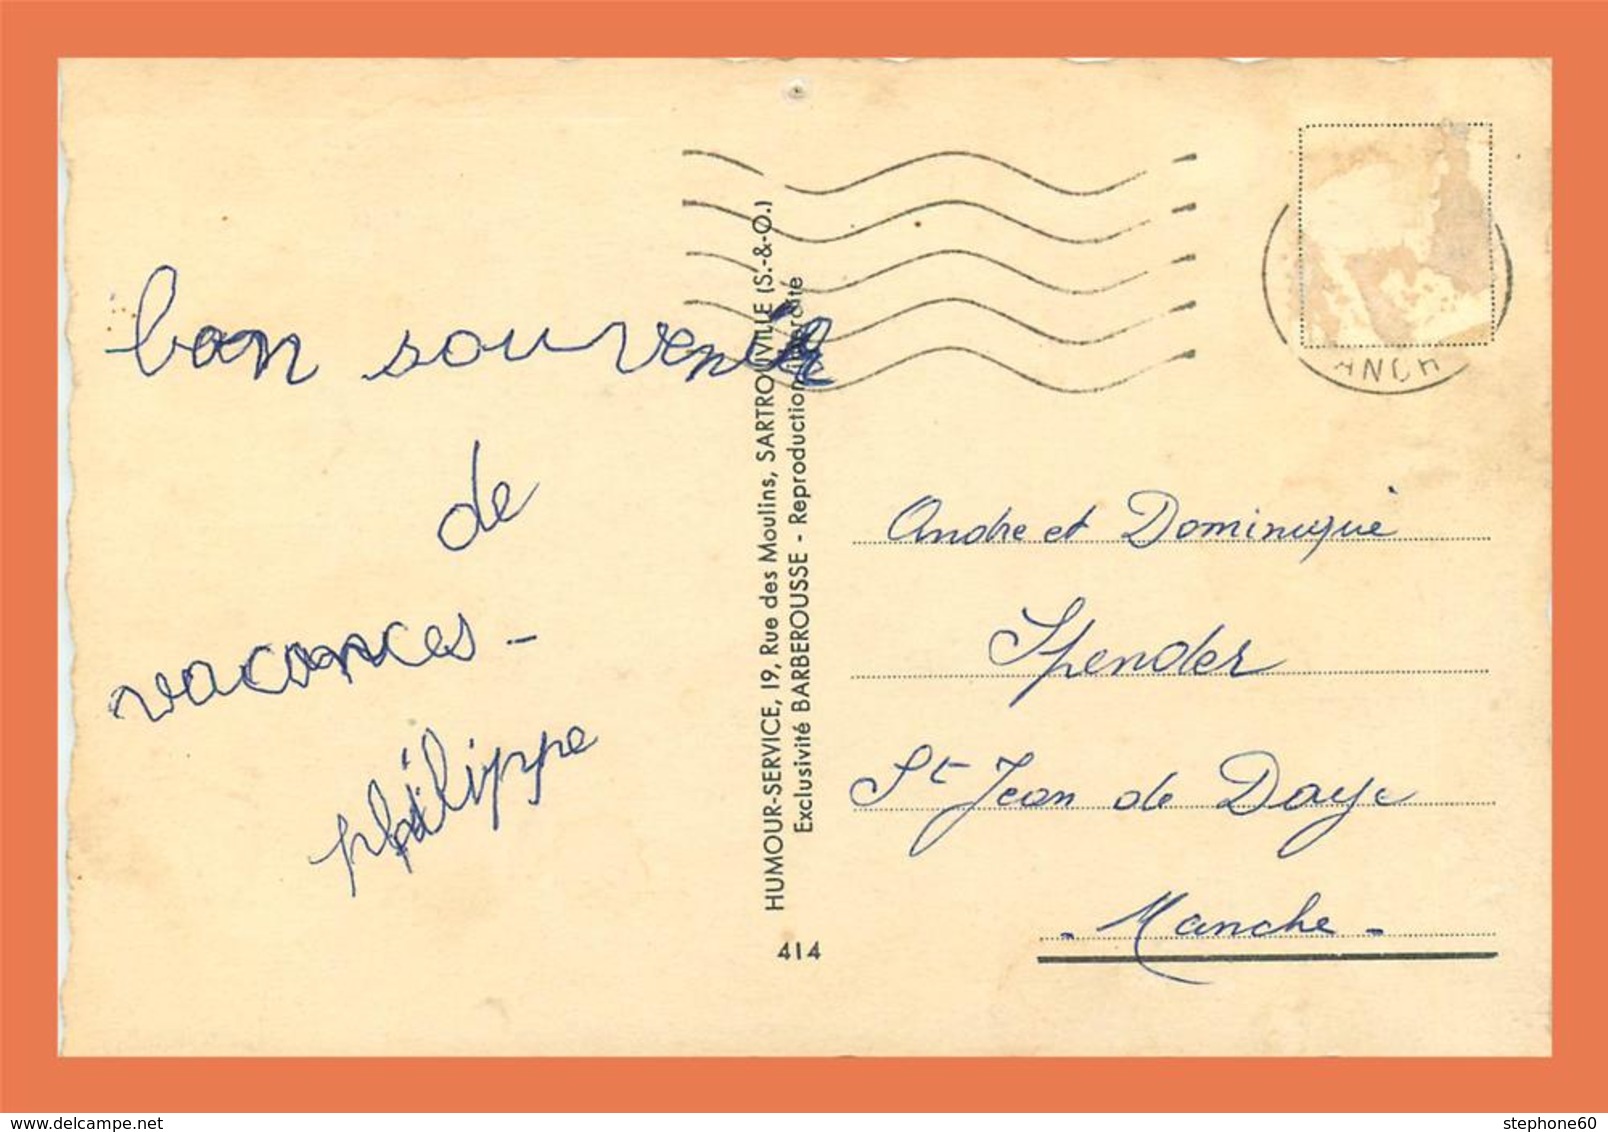 bon souvenir
de
vacances -
philippe
HUMOUR-SERVICE, 19, Rue des Moulins, SARTROUVILLE (S.-&-O.)
Exclusivité BARBEROUSSE - Reproduction interdite
414
ANCH
Andre et Dominique
Spender
St Jean de Daye
- Manche -
www.delcampe.net
stephone60